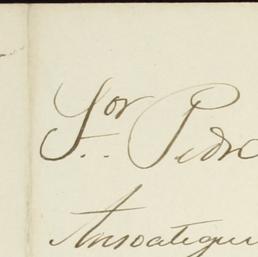 Sor Pedro
Ansoategui